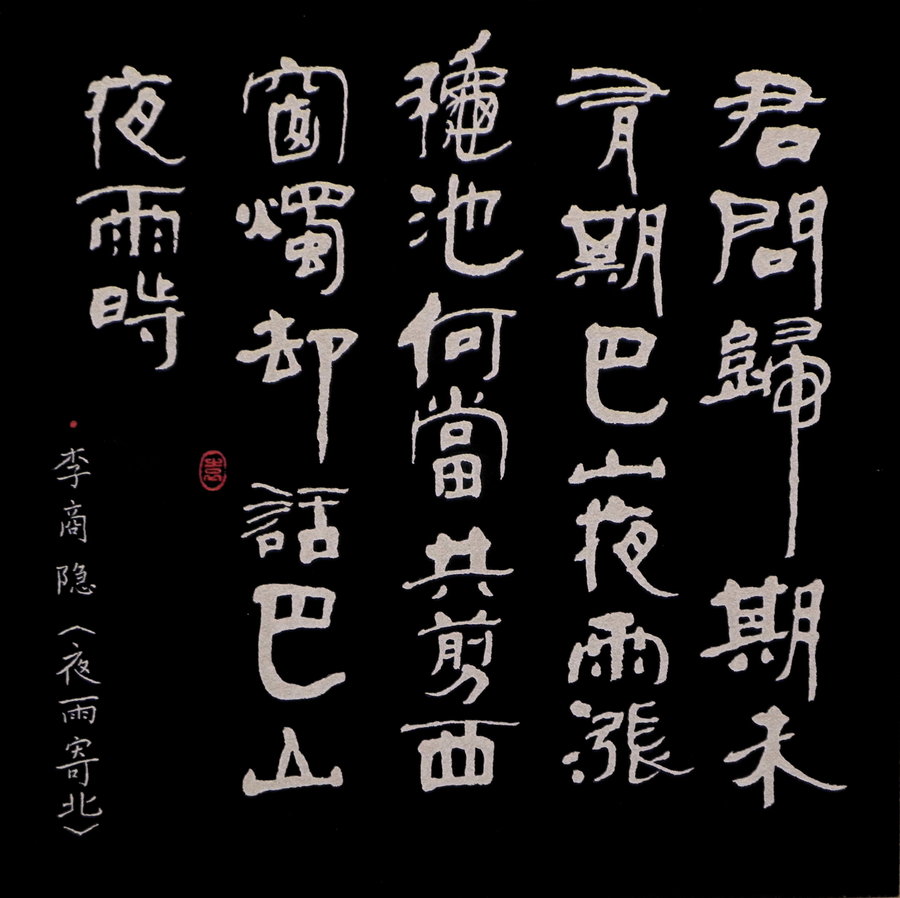 君問歸期未
有期巴山夜雨漲
穐池何當共剪西
窗燭却話巴山
夜雨時
李商隐〈夜雨寄北〉